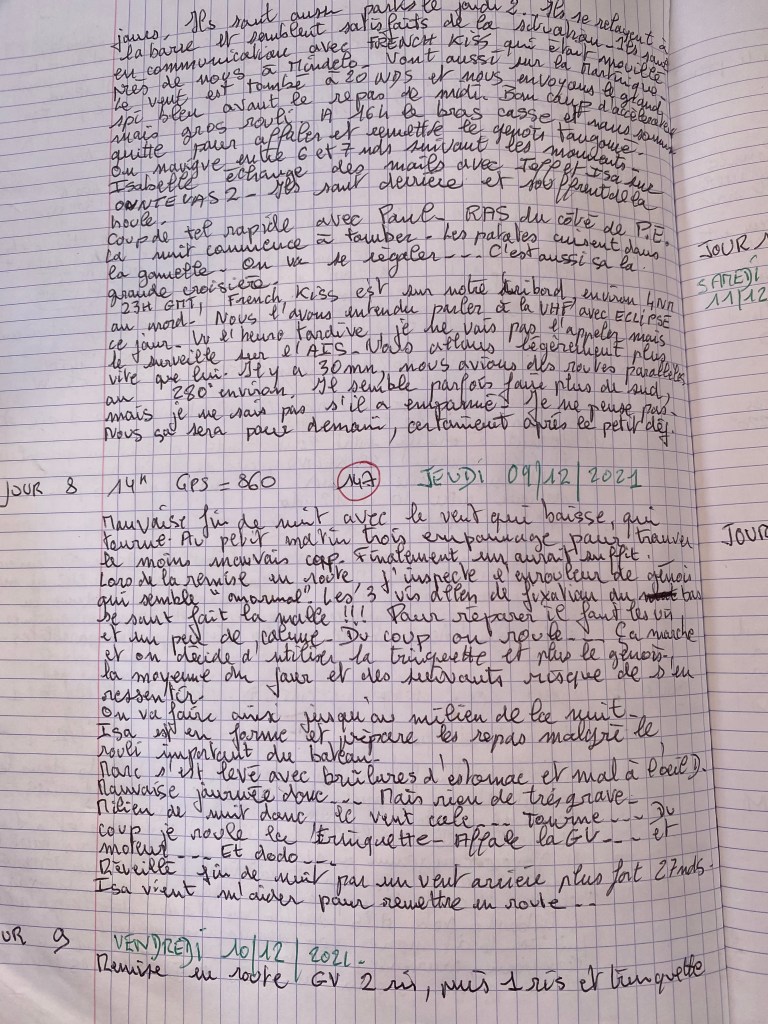 jours. Ils sont aussi partis le jeudi 2. Ils se relayent à
la barre et semblent satisfaits de la situation. Ils sont
en communication avec FRENCH KISS qui était mouillé
près de nous à Mindelo. Vont aussi sur la Martinique
Le vent est tombé à 20 NDS et nous envoyons le grand
spi bleu avant le repas de midi. Bon coup d'accélérateur
mais gros rouli. A 16h le bras casse et nous sommes
quitte pour affaler et remettre le génois tangoné.
On navigue entre 6 et 7 nds suivant les moments.
Isabelle échange des mails avec Jeff et Isa sur
2 - Ils sont derrière et souffrent de la
houle.
Coup de tel rapide avec Paul. RAS du côté de P.E.
La nuit commence à tomber. Les patates cuisent dans
la gamelle. On va se régaler --- C'est aussi sa la
grande croisière.
23H GMT, French Kiss est sur notre tribord, environ 4NM
au nord. Nous l'avons entendu parler à la VHF avec ECLIPSE
ce jour. Vu l'heure tardive, je ne vais pas l'appeler mais
le surveille sur l'AIS. Nous allons légèrement plus
vite que lui. Il y a 30mn, nous avions des routes parallèles
au 280° environ. Il semble parfois faire plus du sud,
mais je ne sais pas s'il a empanné. Je ne pense pas.
Nous sa sera pour demain, certainement après le petit déj.
JOUR 8 14h Gps = 860 147 JEUDI 09/12/2021
Mauvaise fin de nuit avec le vent qui baisse, qui
tourne. Au petit matin trois empannage pour trouver
le moins mauvais cap. Finalement un aurait suffit.
Lors de la remise en route, j'inspecte l'enrouleur de génois
qui semble "anormal" Les 3 vis allen de fixation du bas
se sont fait la malle !!! Pour réparer il faut les vis
et un peu de calme. Du coup on roule --- Ça marche
et on décide d'utiliser la trinquette et plus le génois.
la moyenne du jour et des suivants risque de s'en
ressentir.
On va faire ainsi jusqu'au milieu de la nuit.
Isa est en forme et prépare les repas malgré le
rouli important du bateau.
Marc s'est levé avec brûlures d'estomac et mal à l'oeil D.
Mauvaise journée donc --- Mais rien de très grave.
Milieu de nuit donc, le vent cale --- Tourne --- Du
coup je roule la trinquette - Affale la GV --- et
moteur --- Et dodo ---
Réveillé fin de nuit par un vent arrière plus fort 27nds.
Isa vient m'aider pour remettre en route --
UR 9 VENDREDI 10/12/2021.
Remise en route GV 2 ris, puis 1 ris et trinquette
JOUR 1
SAMEDI
11/12
JOUR